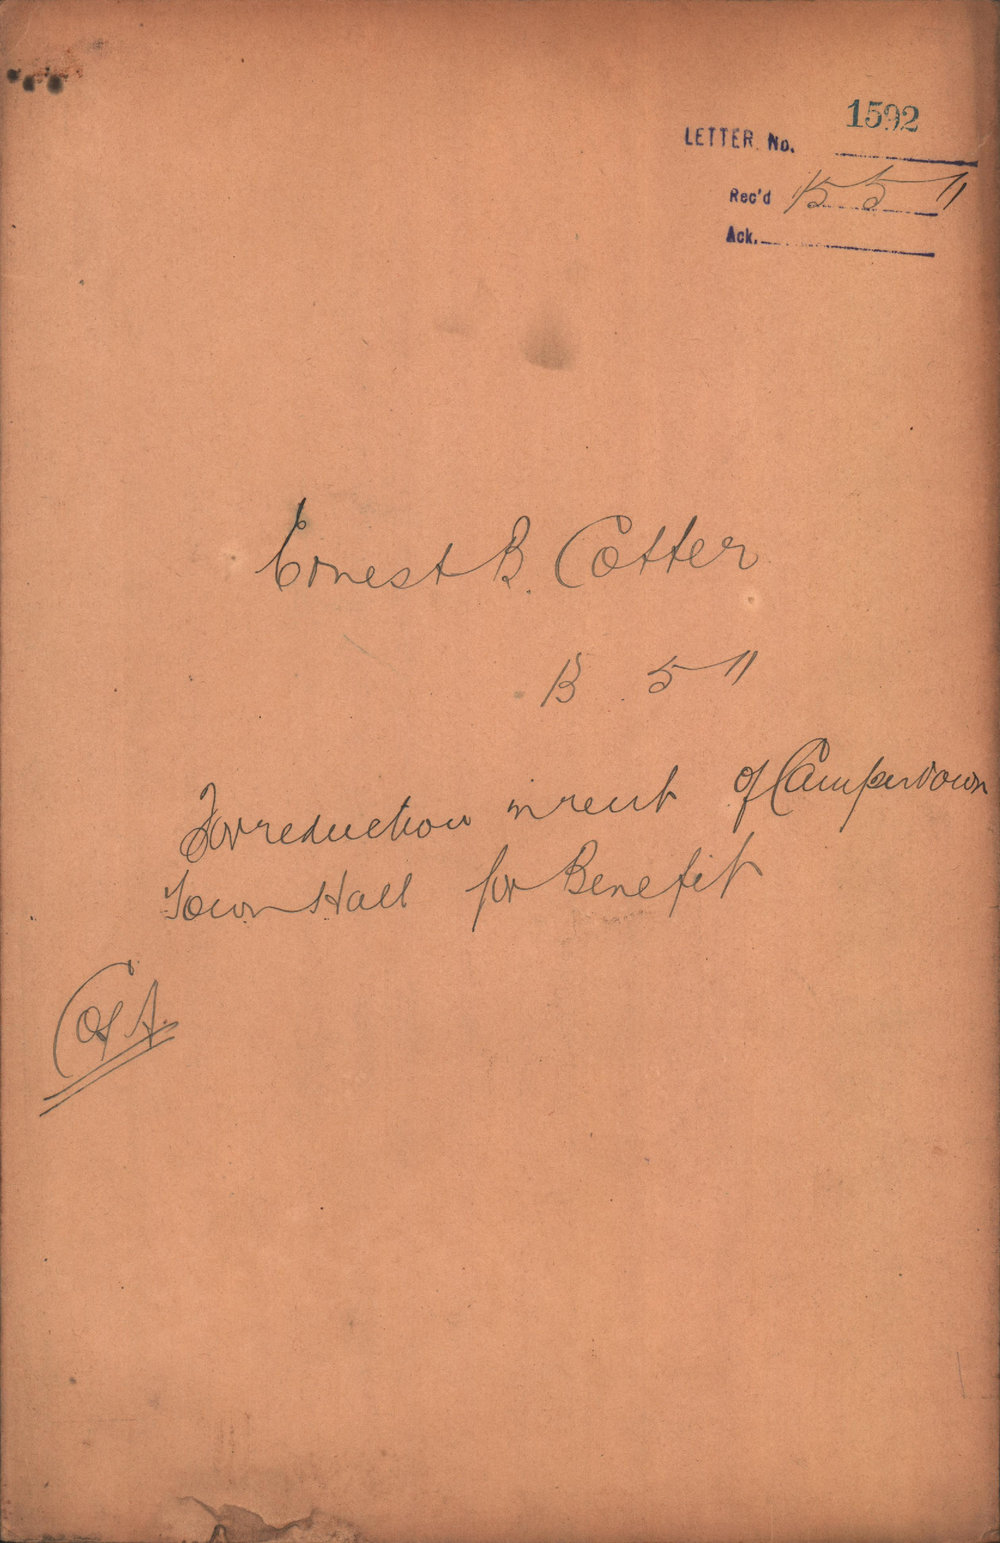 1592
LETTER No.
Rec'd 15 5 11
Ack.
Ernest B. Cotter
13 5 11
For reduction in rent of Camperdown
Town Hall for Benefit